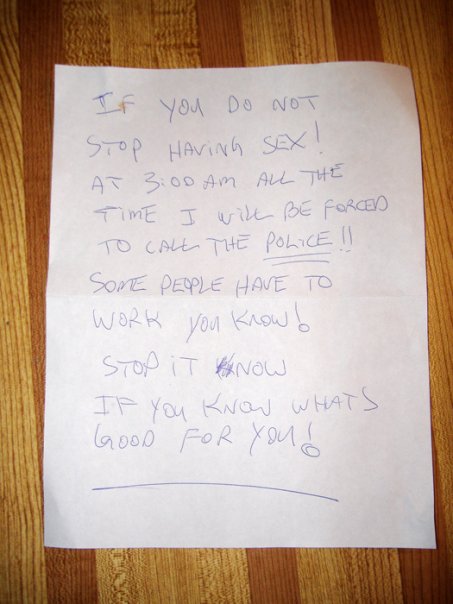 IF YOU DO NOT
STOP HAVING SEX!
AT 3:00 AM ALL THE
TIME I WILL BE FORCED
TO CALL THE POLICE!!
SOME PEOPLE HAVE TO
WORK YOU KNOW!
STOP IT NOW
IF YOU KNOW WHATS
GOOD FOR YOU!